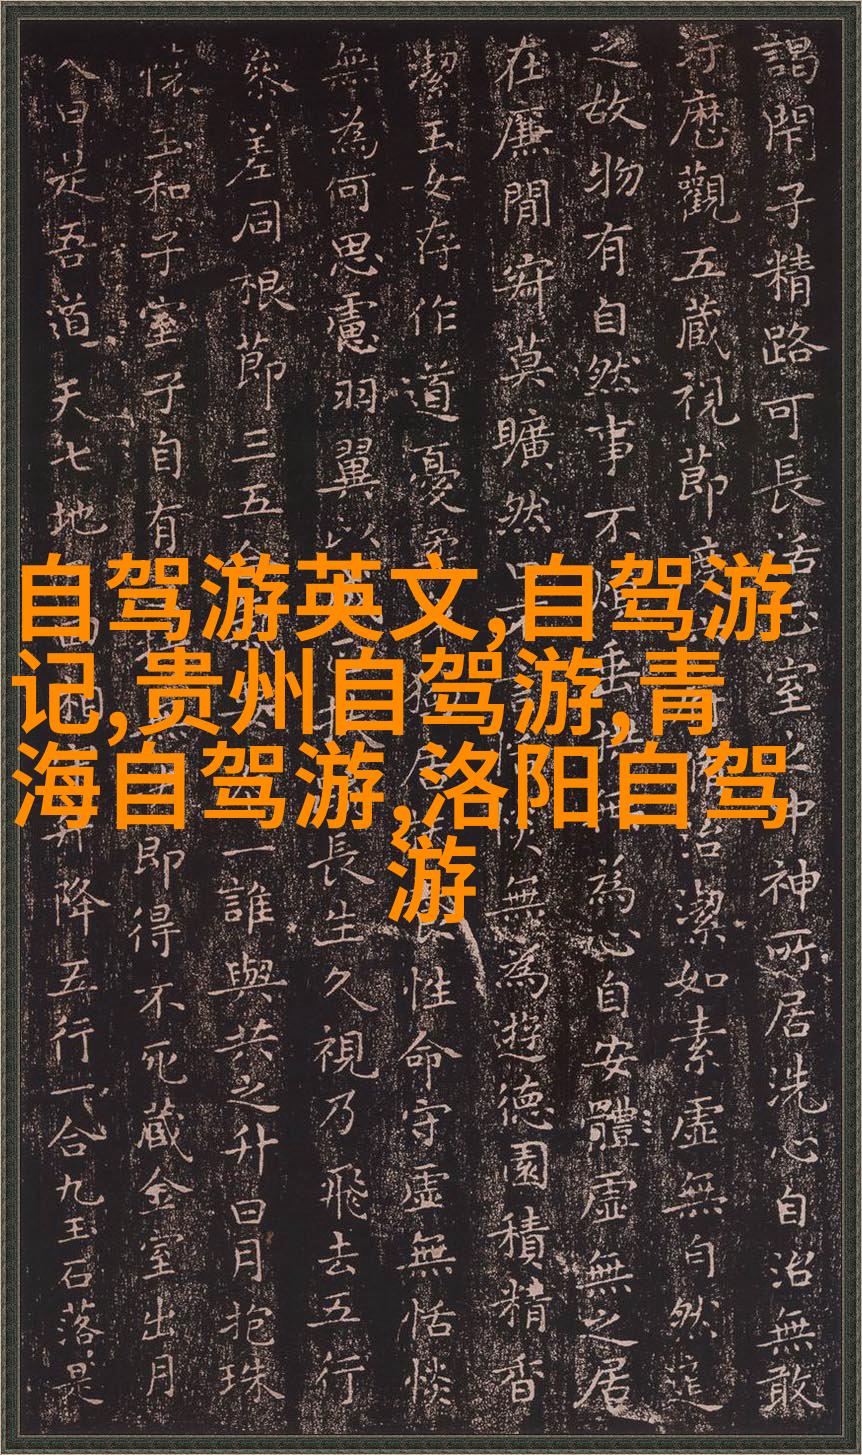 自驾游英文,自驾游
记,贵州自驾游,青
海自驾游,洛阳自驾
游
謁閇子精路可長活正室之中神所居洗心自治無敢
汙歷觀五藏視節度脩治潔如素虛無自然道
之故物有自然事不煩垂拱無為心自安體虛無之居
在廉間寂莫曠然口不言恬惔無為遊德園積精香
潔玉女存作道憂柔身獨居性命守虛無恬惔
無為何思慮羽翼以長生久視乃飛去五行
參差同根節三五合氣要本一誰與共之升日月抱珠
懷玉和子室子自有即得不死藏金室出月
入日是吾道天七地回相升降五行一合九玉石落是